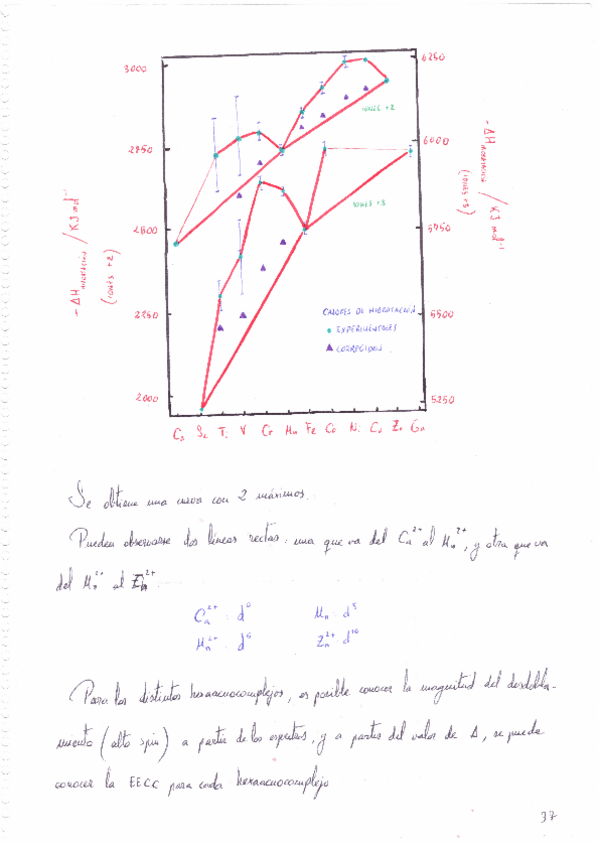 3000
2750
2500
2250
2000
6250
6000
5750
5500
5250
-ΔH hidratación / KJ mol⁻¹
(iones +2)
-ΔH hidratación / KJ mol⁻¹
(iones +3)
iones +2
iones +3
CALORES DE HIDRATACIÓN
EXPERIMENTALES
CORREGIDOS
Ca Sc Ti V Cr Mn Fe Co Ni Cu Zn Ga
Se obtiene una curva con 2 máximos.
Pueden observarse dos líneas rectas: una que va del Ca²⁺ al Mn²⁺, y otra que va
del Mn²⁺ al Zn²⁺
Ca²⁺: d⁰ Mn: d⁵
Mn²⁺: d⁵ Zn²⁺: d¹⁰
Para los distintos hexaacuocomplejos, es posible conocer la magnitud del desdobla-
miento (alto spin) a partir de los espectros, y a partir del valor de Δ, se puede
conocer la EECC para cada hexaacuocomplejo
37